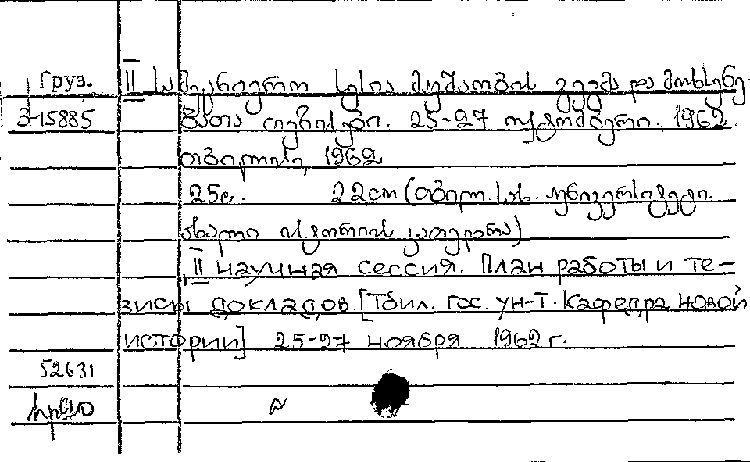 Груз. II სამეცნიერო სესია მუშაობის გეგმა და მოხსენე-
3-15885 ბათა თეზისები. 25-27 ოქტომბერი. 1962.
თბილისი, 1962
25с. 22cm (თბილ. სახ. უნივერსიტეტი.
ახალი ისტორიის კათედრა)
II научная сессия. План работы и те-
зисы докладов. [Тбил. гос. ун-т. Кафедра новой
истории] 25-27 ноября 1962 г.
52631